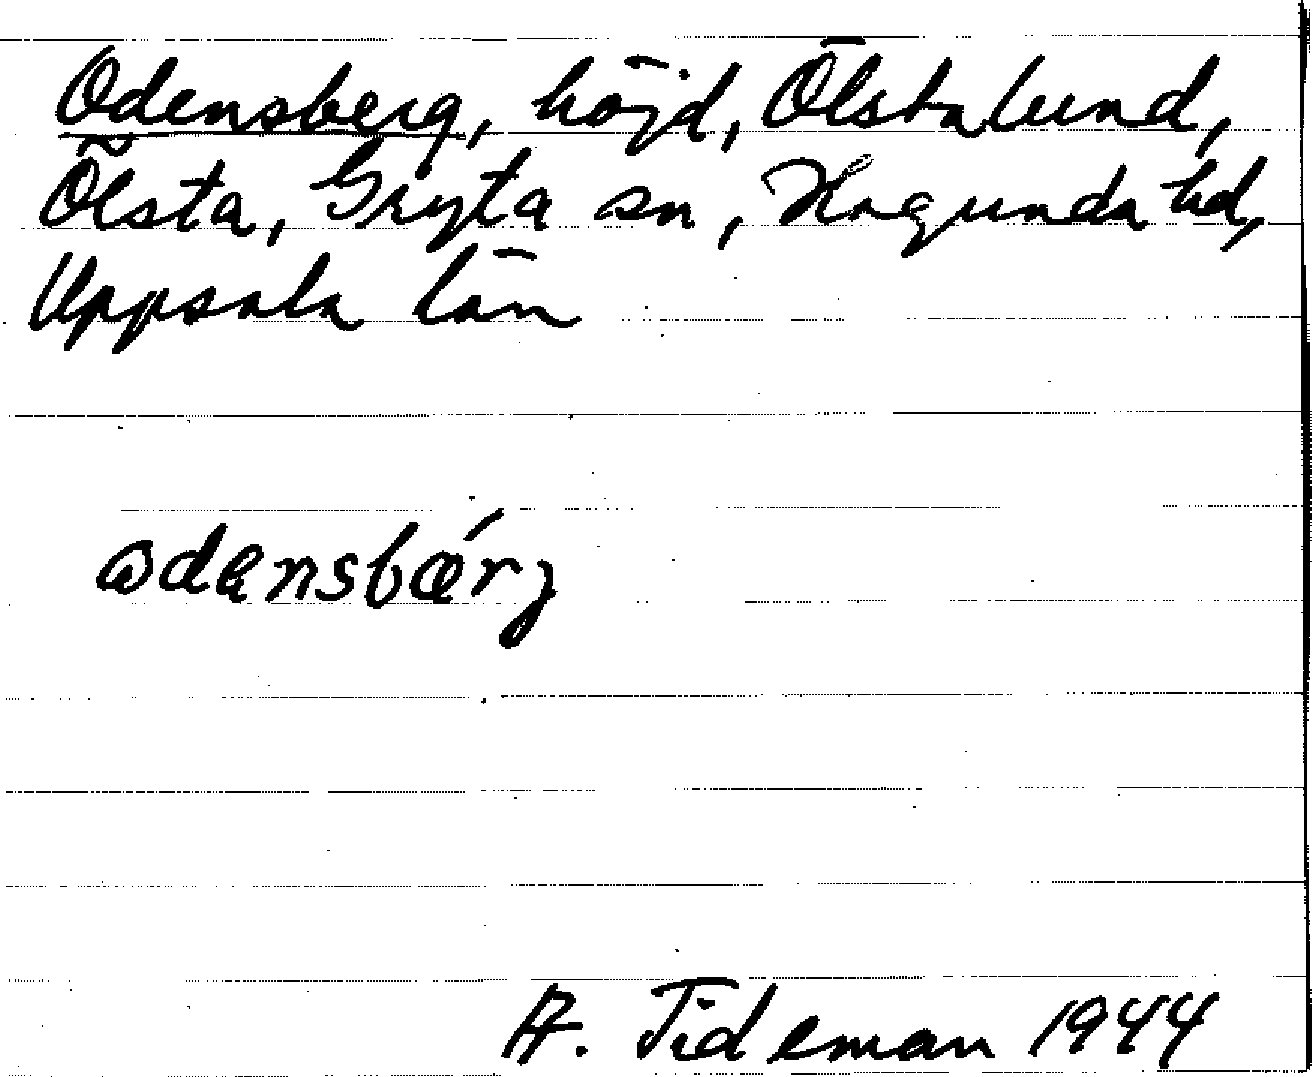 Odensberg, höjd, Ölstalund,
Ölsta, Gryta sn, Hagunda hd,
Uppsala län
ωdensbǽrȷ
A. Tideman 1944